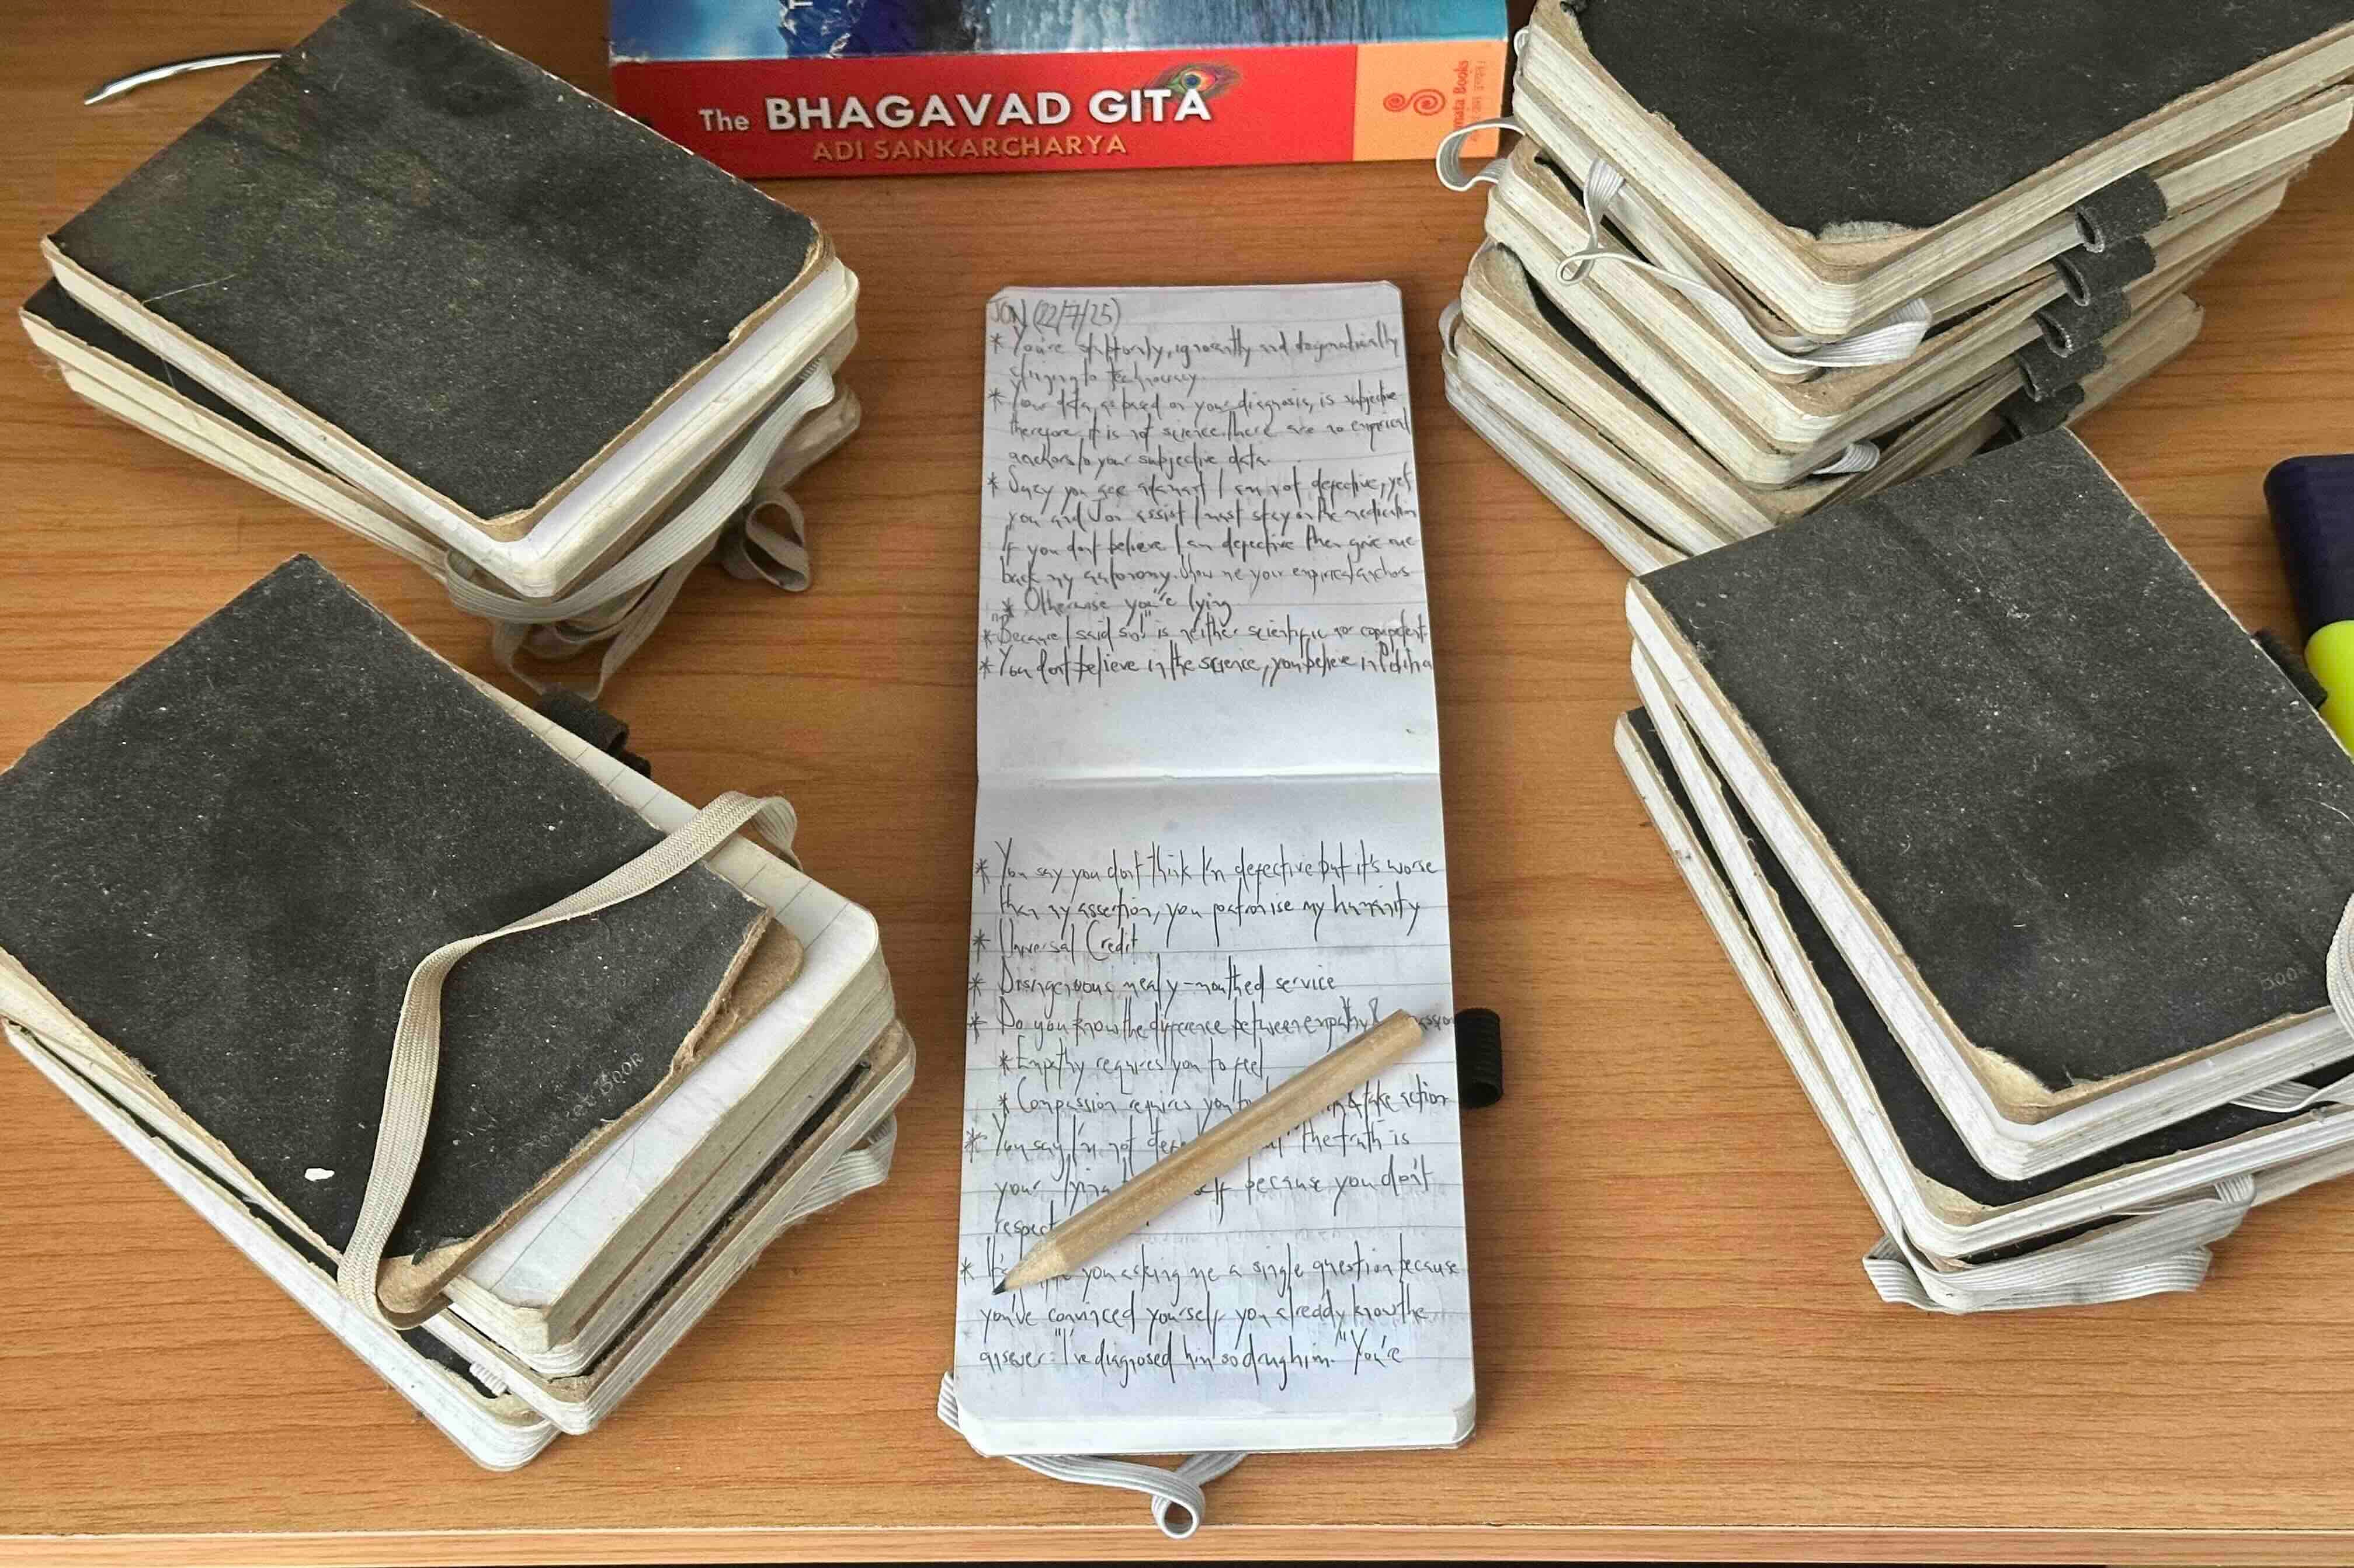 The BHAGAVAD GITA
ADI SANKARCHARYA
Books
JON (22/7/25)
* You're stubbornly, ignorantly and dogmatically
clinging to technocracy.
* Your data, as based on your diagnosis, is subjective
therefore it is not science. There are no empirical
anchors to your subjective data.
* Suzy you are adamant I am not defective, yet
you and Jon assist I must stay on the medication
If you don't believe I am defective then give me
back my autonomy. Show me your empirical anchors
* Otherwise you're lying
* "Because I said so!" is neither scientific nor competent.
* You don't believe in the science, you believe in
* You say you don't think I'm defective but it's worse
than my assertion, you patronise my humanity
* Universal Credit
* Disingenuous mealy-mouthed service
* Do you know the difference between empathy &
* Empathy requires you to feel
* Compassion requires you & take action
* You say I'm not the truth is
your lying because you don't
respect
* you asking me a single question because
you've convinced yourself you already know the
answer: "I've diagnosed him so drug him." You're
BOOK
BOOK